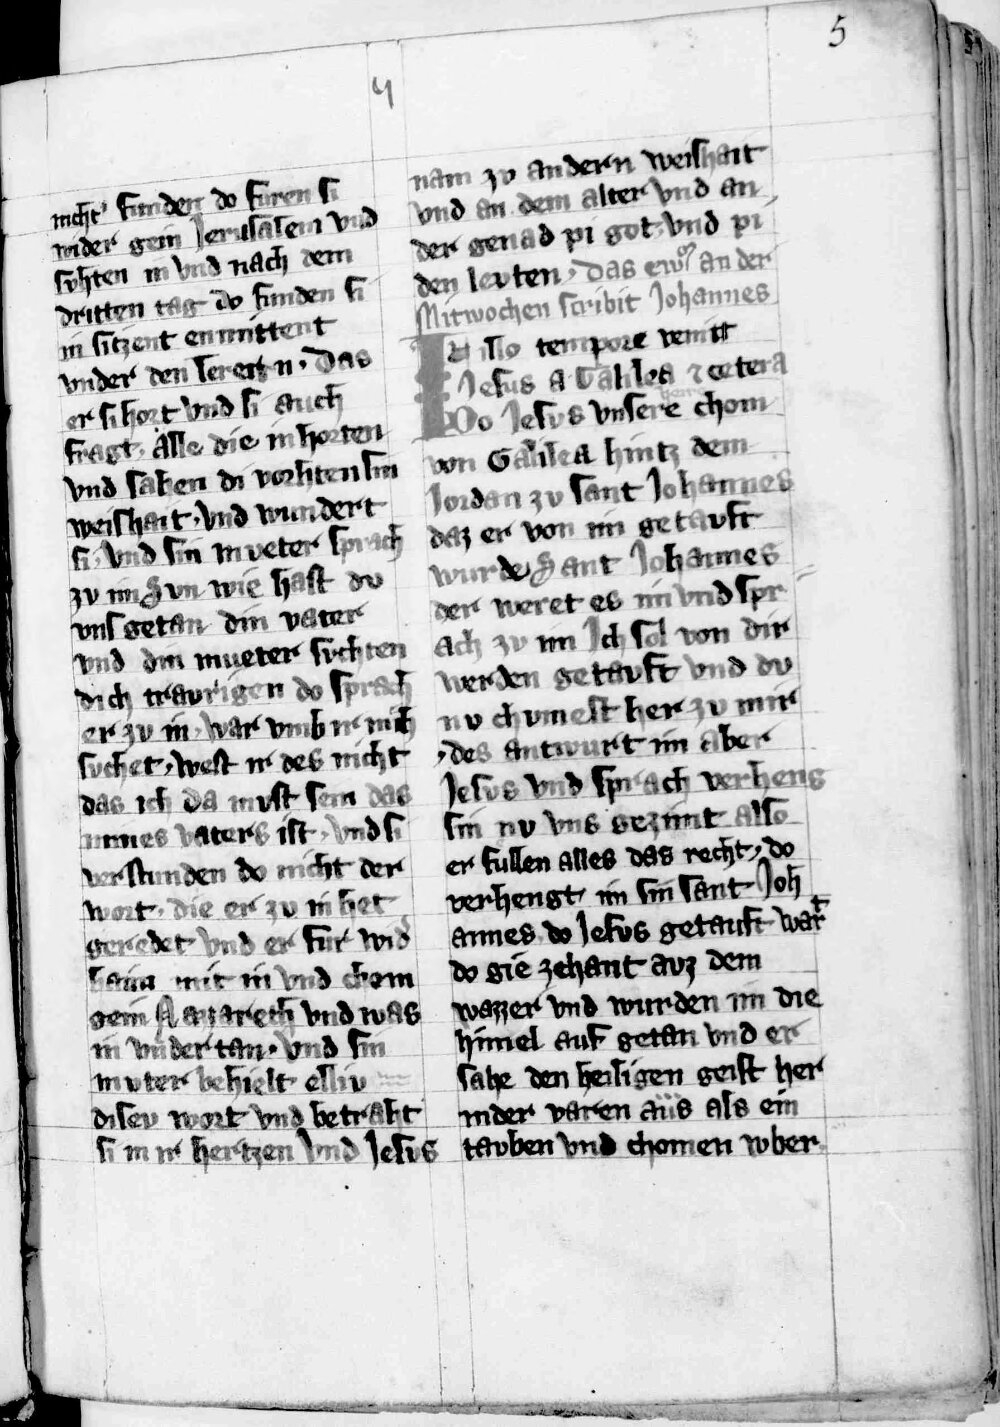 5
4
nicht funden do furen si
wider gein Jerusalem vnd
suhten in vnd nach dem
dritten tag do funden si
in sitzent enmittent
vnder den lerern · Das
er si hort vnd si auch
fragt · Alle die in horten
vnd sahen di vorhten sin
weishait · vnd wundert
si · vnd sin mveter sprach
zv im Svn wie hast dv
vns getan din vater
vnd din mveter svchten
dich travrigen do sprach
er zv in · war vmb ir mich
svchet · west ir des nicht
das ich da mvst sein das
mines vaters ist · vnd si
verstunden do nicht der
wort · die er zv in het
geredet vnd er fur wid
haim mit in vnd chom
gein Nazareth vnd was
in vnder tan · vnd sin
mvter behielt elliv
disev wort vnd betraht
si in ir hertzen Vnd Jesvs
nam zv andern weishait
vnd an dem alter vnd an
der genad pi got · vnd pi
den levten · Das ewg an der
Mitwochen scribit Johannes
In illo tempore venit
Jesus a Galilea et cetera
Do Jesvs vnsere herre chom
von Galilea hintz dem
Jordan zv sant Johannes
daz er von im getavft
wurde Sant Johannes
der weret es im vnd spr
ach zv im Ich sol von dir
werden getavft vnd dv
nv chvmest her zv mir
· des antwurt im aber
Jesvs vnd sprach verheng
sin nv vns gezimt also
er fullen alles das recht · do
verhengt im sin sant Joh
annes · do Jesvs getauft wart
do gie zehant avz dem
wazzer vnd wurden im die
himel auf getan vnd er
sahe den heiligen geist her
nider varen aüs als ein
tavben vnd chomen vber